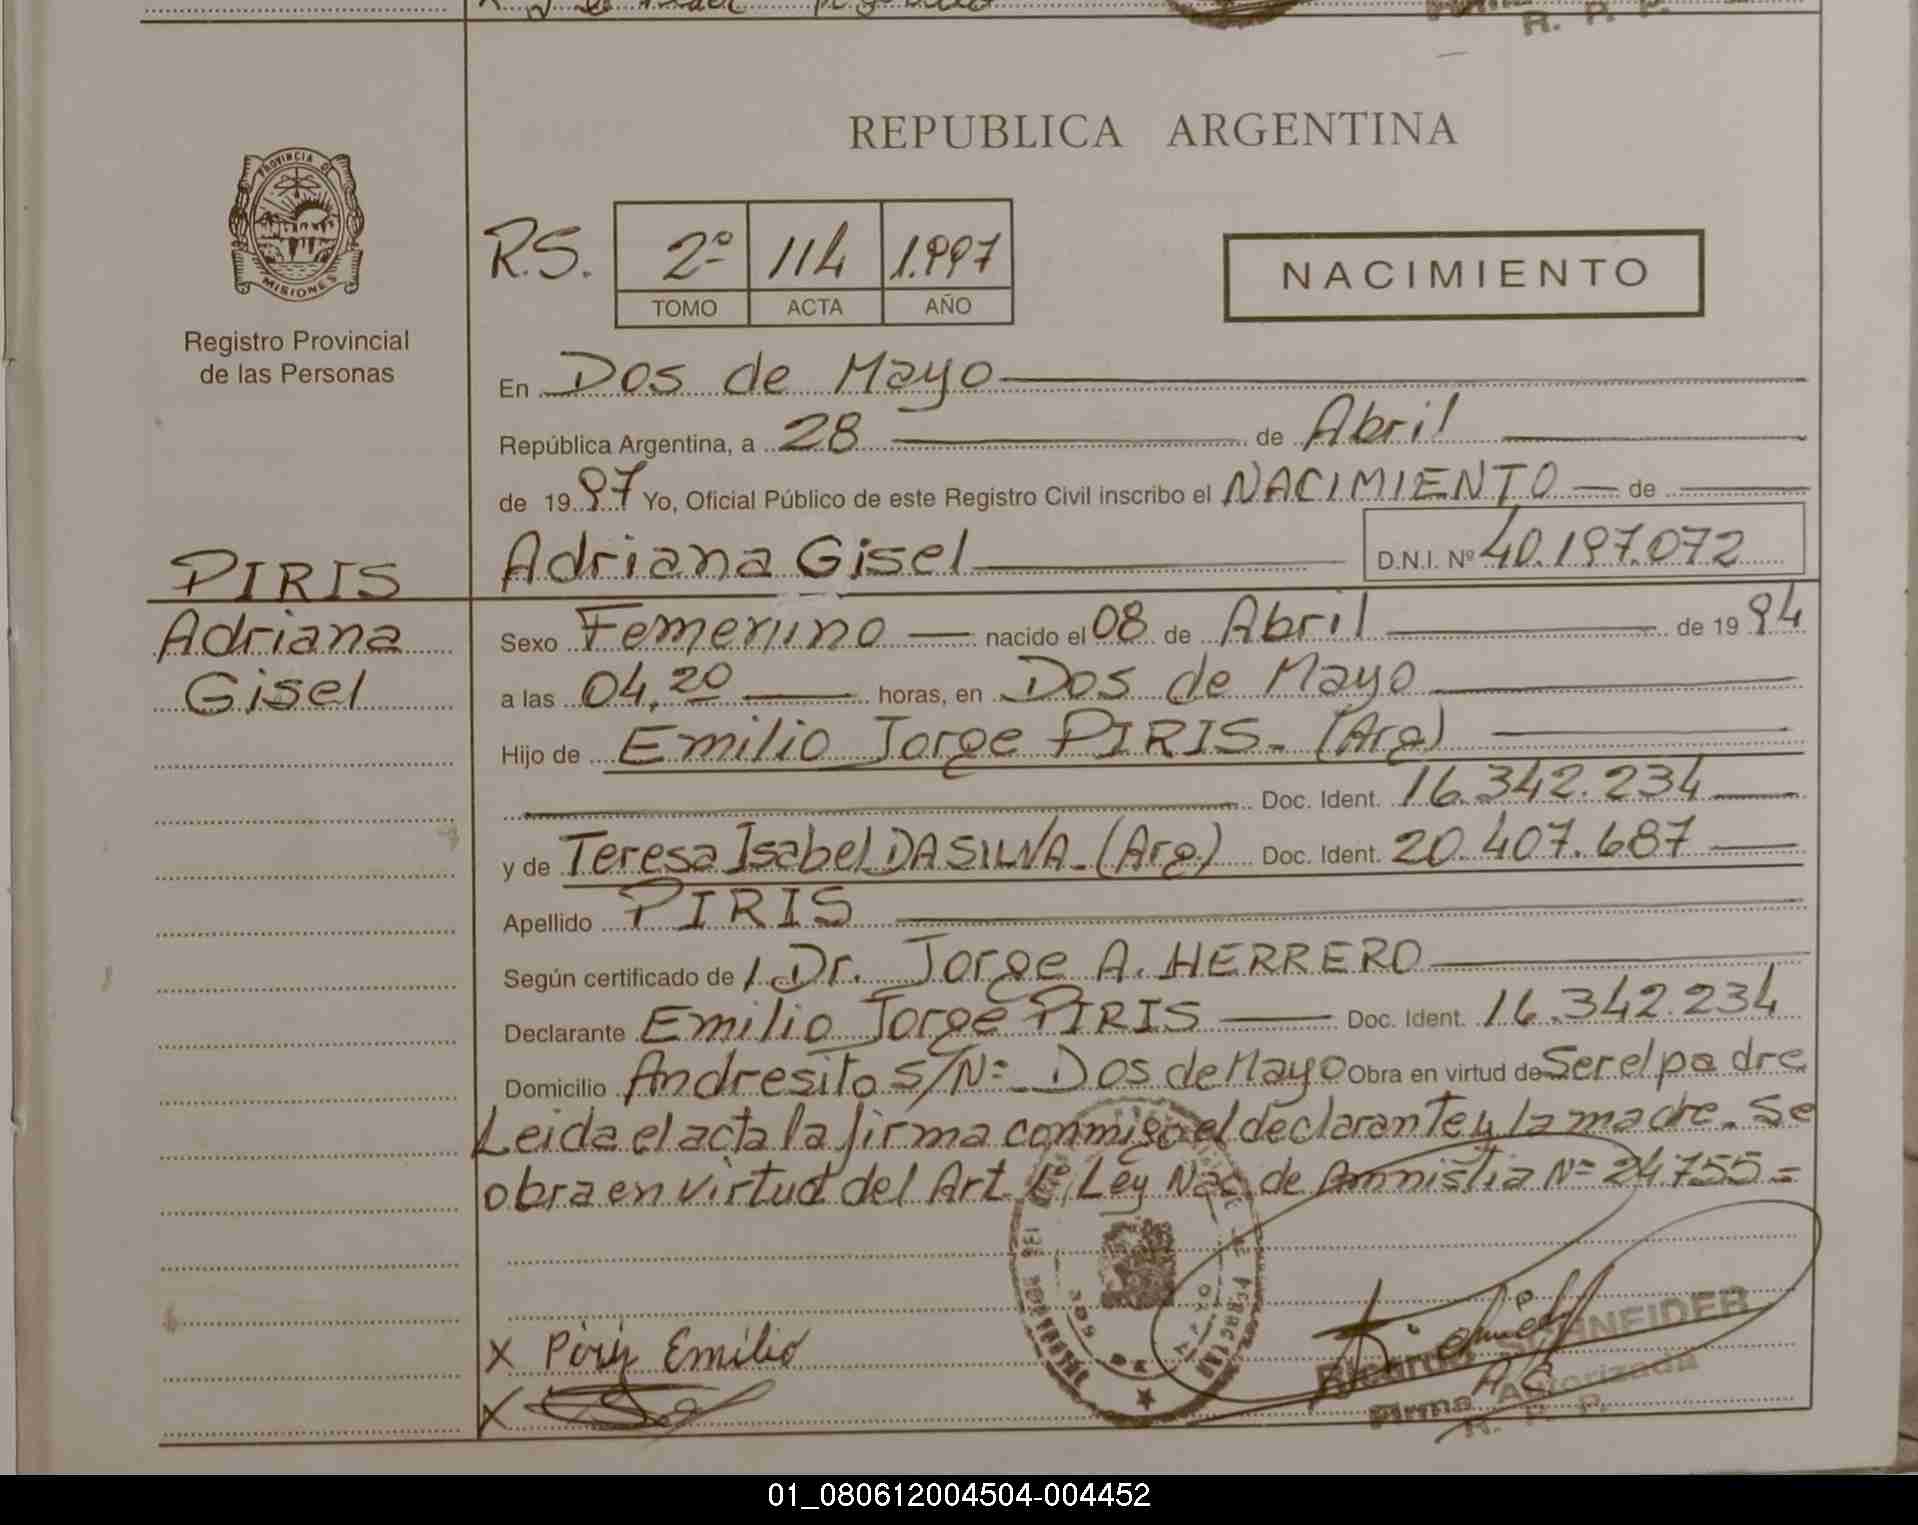 R. P. P.
REPUBLICA ARGENTINA
PROVINCIA DE
MISIONES
Registro Provincial
de las Personas
R.S. 2º 114 1.997
TOMO ACTA AÑO
NACIMIENTO
En Dos de Mayo
República Argentina, a 28 de Abril
de 1997 Yo, Oficial Público de este Registro Civil inscribo el NACIMIENTO de
PIRIS
Adriana
Gisel
Adriana Gisel D.N.I. Nº 40.197.072
Sexo Femenino nacido el 08 de Abril de 1994
a las 04,20 horas, en Dos de Mayo
Hijo de Emilio Jorge PIRIS. (Arg)
Doc. Ident. 16.342.234
y de Teresa Isabel DA SILVA. (Arg) Doc. Ident. 20.407.687
Apellido PIRIS
Según certificado de / Dr. Jorge A. HERRERO
Declarante Emilio Jorge PIRIS Doc. Ident. 16.342.234
Domicilio Andresito S/Nº Dos de Mayo Obra en virtud de Ser el padre
Leida el acta la firma conmigo el declarante y la madre. Se
obra en virtud del Art. 6º, Ley Nac. de Amnistia Nº 24755=
X Piris Emilio
X
Ricardo SCHNEIDER
Firma Autorizada
R. P. P.
01_080612004504-004452